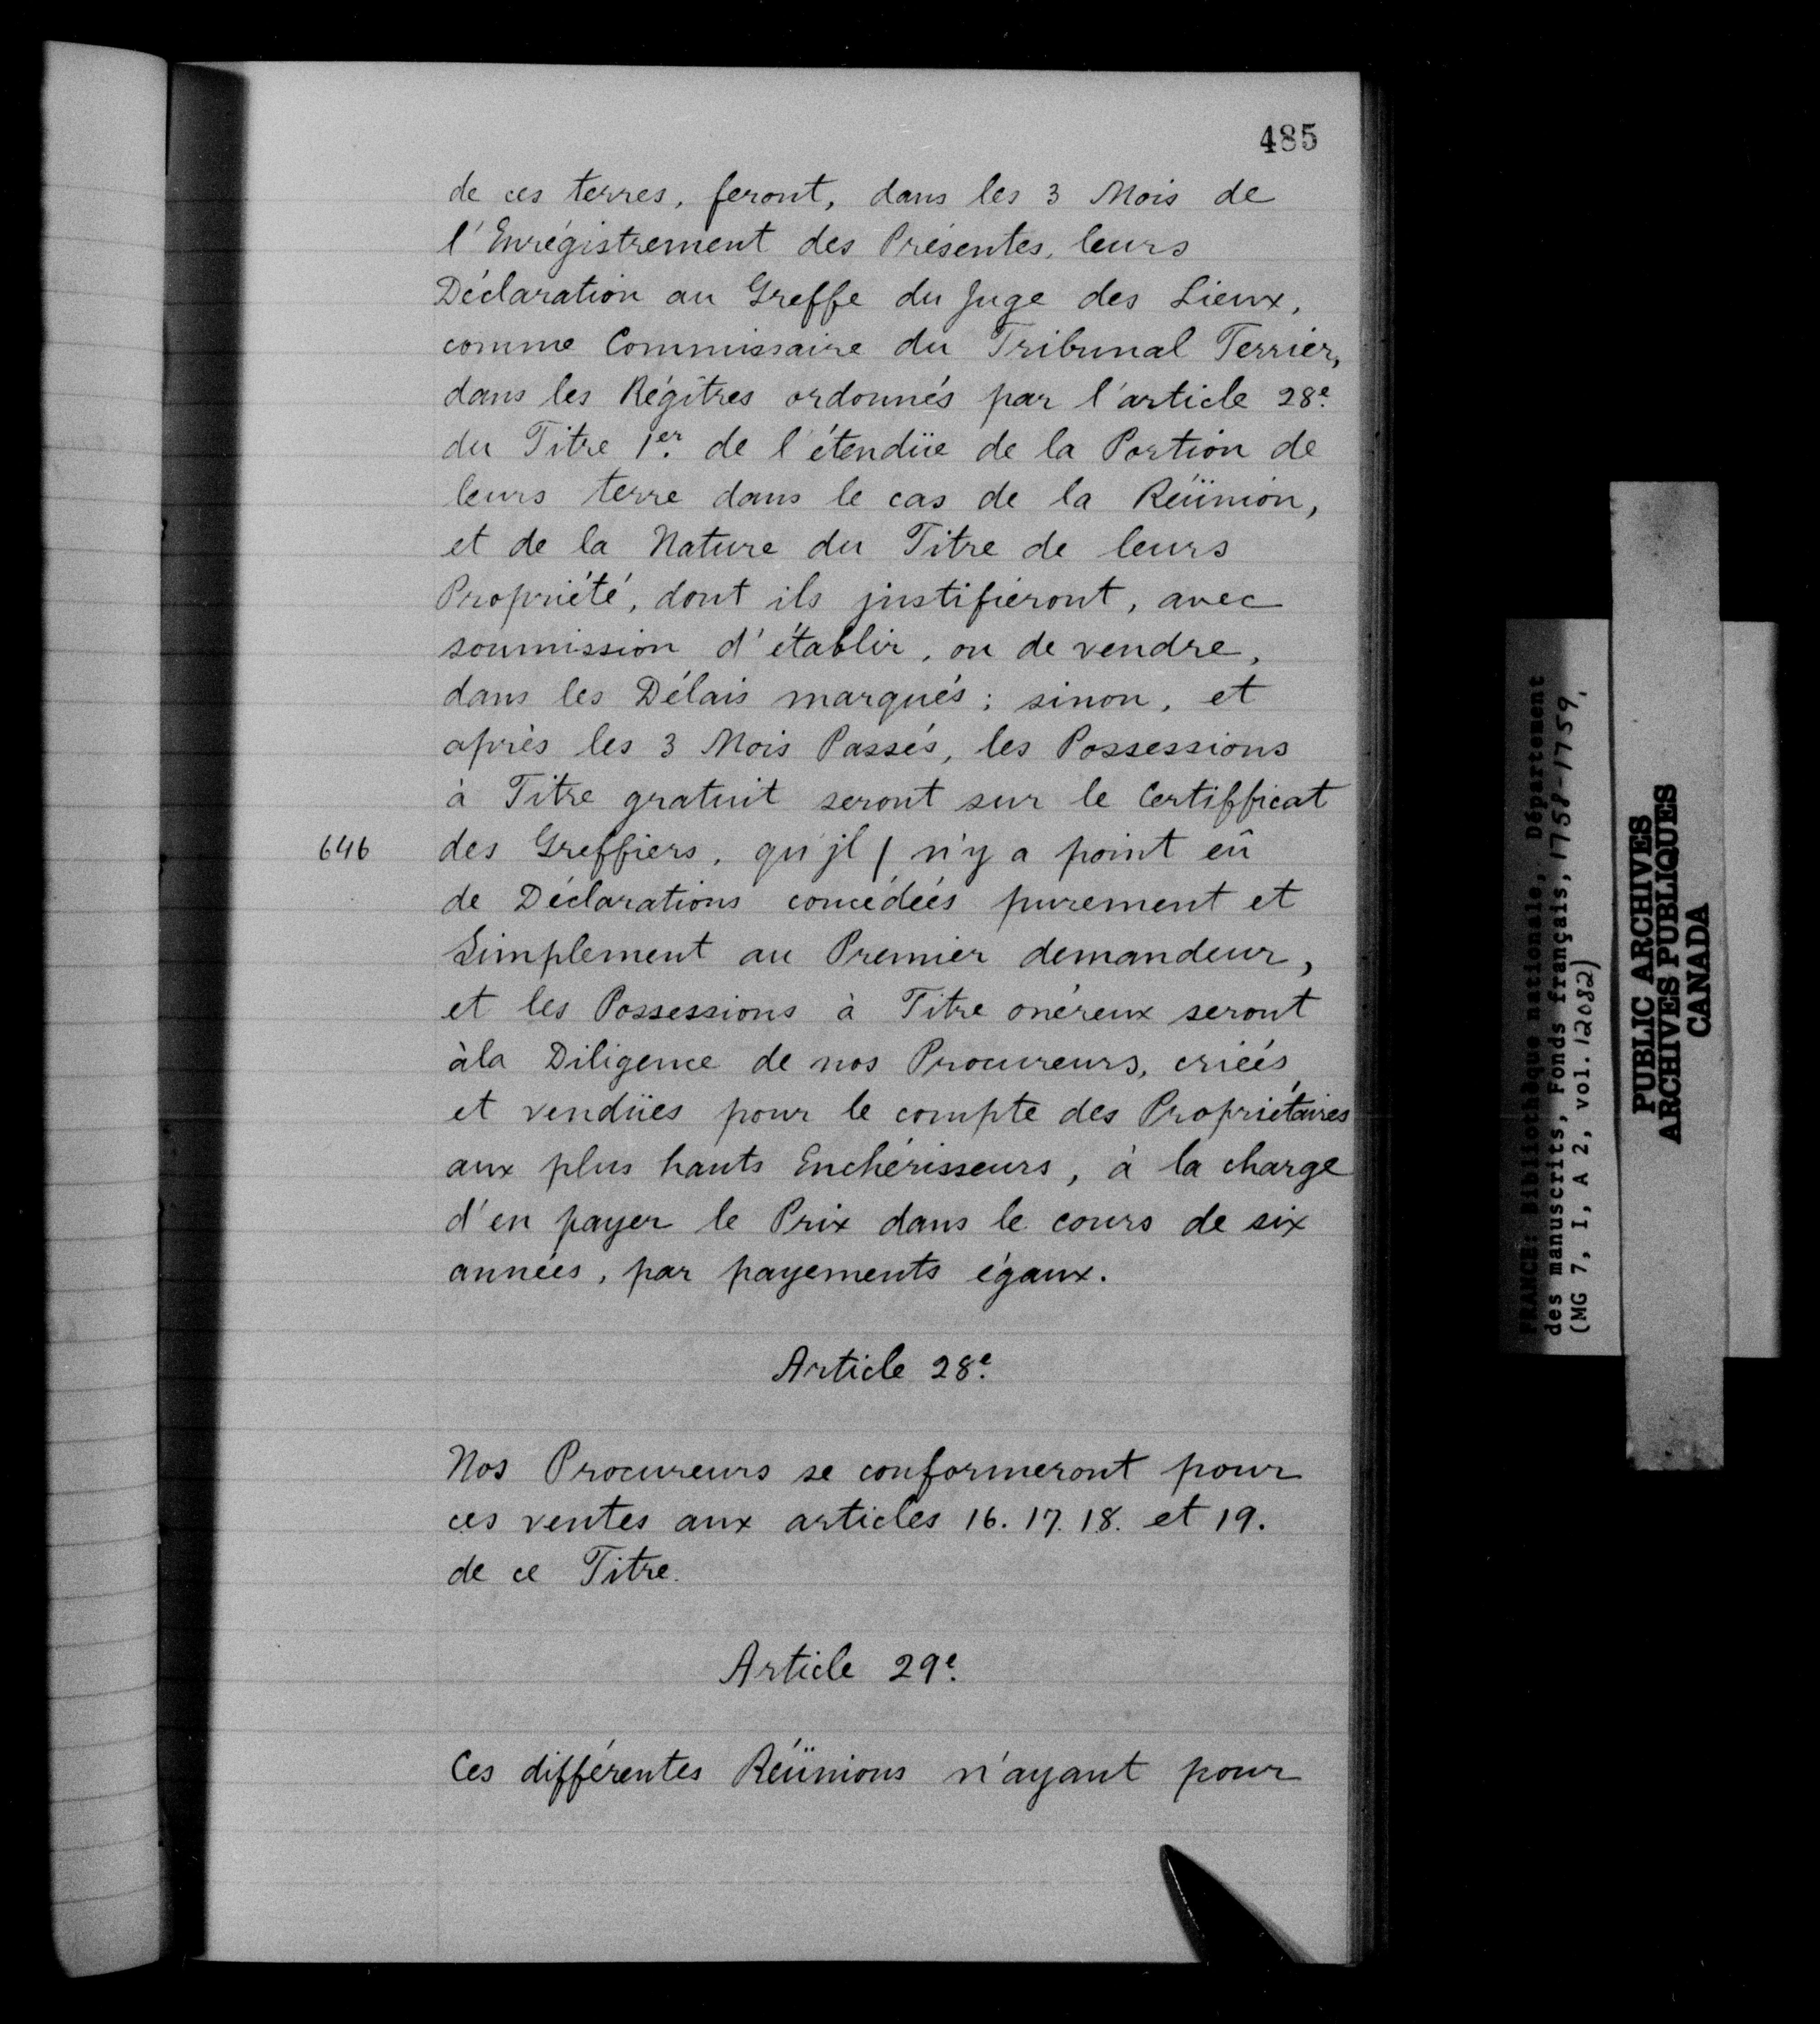 485
de ces terres, feront, dans les 3 Mois de
l'Enrégistrement des Présentes, leurs
Déclaration au Greffe du Juge des Lieux,
comme Commissaire du Tribunal Terrier,
dans les Régîtres ordonnés par l'article 28e.
du Titre 1er. de l'étendüe de la Portion de
leurs terre dans le cas de la Réünion,
et de la Nature du Titre de leurs
Propriété, dont ils justifiéront, avec
soumission d'établir, ou de vendre,
dans les Délais marqués; sinon, et
après les 3 Mois Passés, les Possessions
à Titre gratuit seront sur le Certifficat
646 des Greffiers, qu'jl / n'y a point eû
de Déclarations concédéés purement et
Simplement au Premier demandeur,
et les Possessions à Titre onéreux seront
àla Diligence de nos Procureurs, criéés
et vendües pour le compte des Propriétaires
aux plus hauts Enchérisseurs, à la charge
d'en payer le Prix dans le cours de six
années, par payements égaux.
Article 28e.
Nos Procureurs se conformeront pour
ces ventes aux articles 16. 17. 18. et 19.
de ce Titre.
Article 29e.
Ces différentes Réünions n'ayant pour
FRANCE: Bibliothèque nationale, Département
des manuscrits, Fonds français, 1758-1759,
(MG 7, I, A 2, vol. 12082)
PUBLIC ARCHIVES
ARCHIVES PUBLIQUES
CANADA